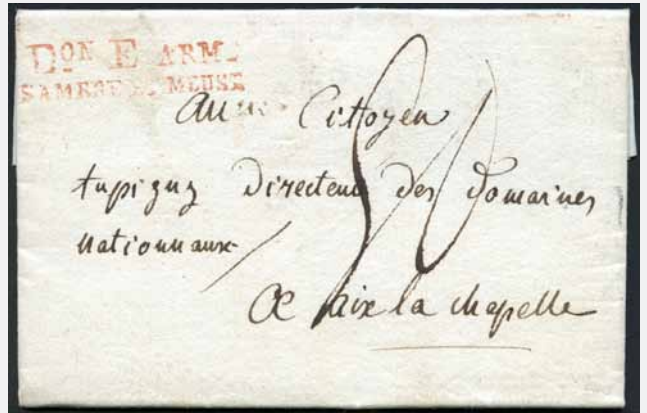 Don E ARM.
SAMBRE ET MEUSE
Au Citoyen
tupigny Directeur des Domaines
nationnaux
a aix la chapelle